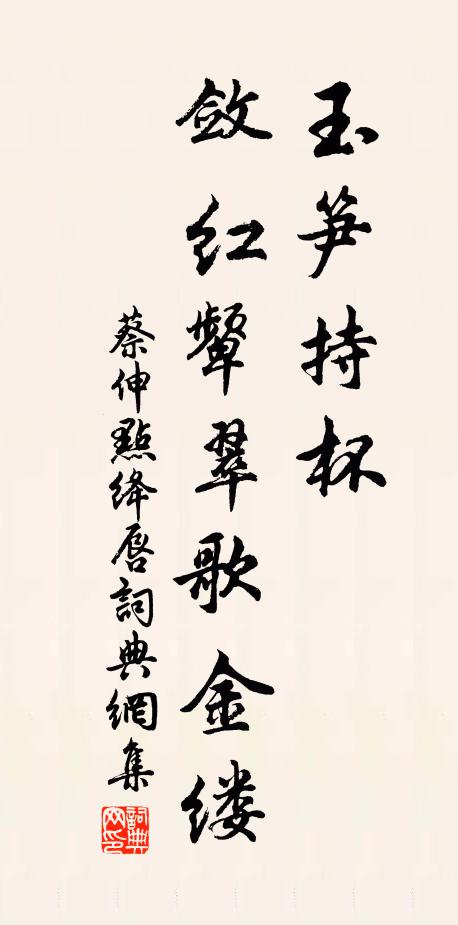 玉笋持杯
敛红颦翠歌金缕
蔡伸點绛唇詞典網集
詞典网印